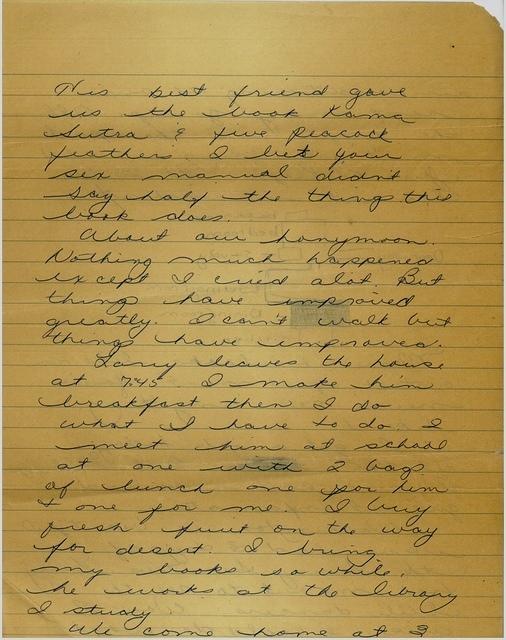 His best friend gave
us the book Kama
Sutra & five Peacock
feathers I bet your
sex manual didnt
say half the things this
book does.
About our honymoon.
Nothing much happened
except I cried alot. But
things have improved
greatly. I can't walk but
things have improves.
Larry leaves the house
at 7:45 I make him
breakfast then I do
what I have to do I
meet him at school
at one with 2 bags
of lunch one for him
& one for me. I buy
fresh fruit on the way
for desert. I bring
my books so while
he works at the library
I study
We come home at